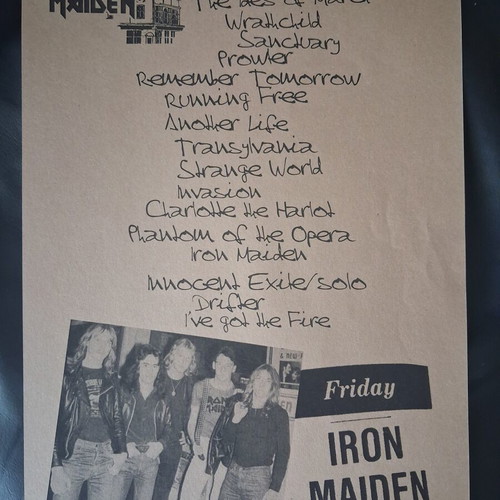 MAIDEN
The Ides of March
Wrathchild
Sanctuary
Prowler
Remember Tomorrow
Running Free
Another Life
Transylvania
Strange World
Invasion
Charlotte the Harlot
Phantom of the Opera
Iron Maiden
Innocent Exile/solo
Drifter
I've got the Fire
IRON
MAIDEN
Friday
IRON
MAIDEN